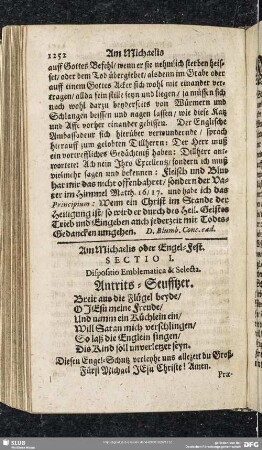 1252 Am Michaelis
auff Gottes Befehl/ wenn er sie nehmlich sterben heis-
set/ oder dem Tod übergebet/ alsdenn im Grabe oder
auff einem Gottes Acker sich wohl mit einander ver-
tragen/ allda fein stille seyn und liegen/ ja müssen sich
noch wohl darzu beyderseits von Würmern und
Schlangen beissen und nagen lassen/ wie diese Katz
und Affe vorher einander gebissen. Der Englische
Ambassadeur sich hierüber verwundernde/ sprach
hierauff zum gelobten Tillherrn: Der Herr muß
ein vortreffliches Gedächtniß haben: Dillherr ant-
wortete: Ach nein Ihre Excellentz/ sondern ich muß
vielmehr sagen und bekennen: Fleisch und Blut
hat mir das nicht offenbahret/ sondern der Va-
ter im Himmel Matth. 16/17. und habe ich das
Principium: Wenn ein Christ im Stande der
Heiligung ist/ so wird er durch des Heil. Geistes
Trieb und Eingeben auch jederzeit mit Todes-
Gedancken umgehen. D. Blumb. Conc. ead.
Am Michaelis oder Engel-Fest.
SECTIO I.
Dispositio Emblematica & Selecta.
Antrits-Seuffzer.
Breit aus die Flügel beyde/
O JEsu meine Freude/
Und nimm ein Küchlein ein/
Will Satan mich verschlingen/
So laß die Englein singen/
Dis Kind soll unverletzet seyn.
Diesen Engel-Schutz verleyhe uns allezeit du Groß-
Fürst Michael JEsu Christe! Amen.
Præ-